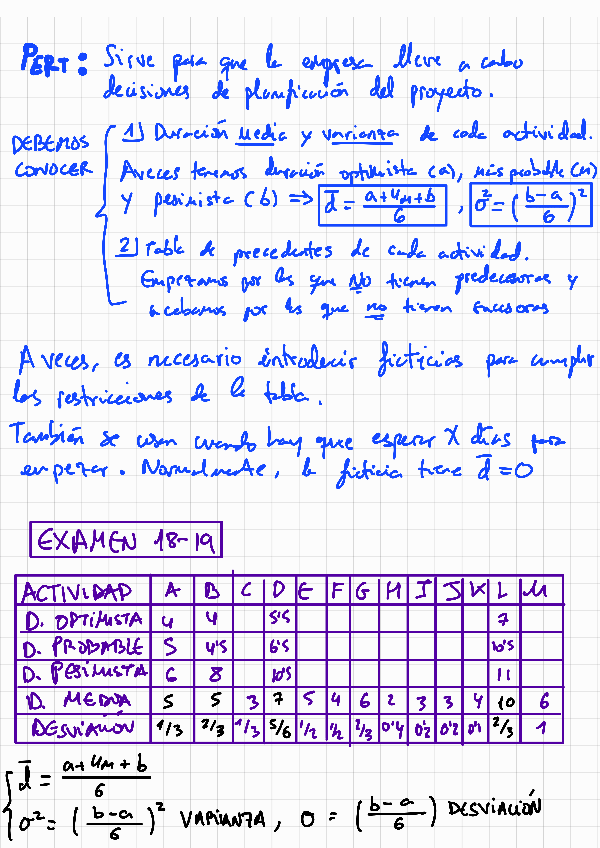 PERT: Sirve para que la empresa lleve a cabo
decisiones de planificación del proyecto.
DEBEMOS CONOCER
1) Duración media y varianza de cada actividad.
A veces tenemos duración optimista (a), más probable (M)
y pesimista (b) ⇒ d̄ = (a+4M+b)/6 , σ² = ((b-a)/6)²
2) Tabla de precedentes de cada actividad.
Empezamos por las que NO tienen predecesoras y
acabamos por las que no tienen sucesoras
A veces, es necesario introducir ficticias para cumplir
las restricciones de la tabla.
También se usan cuando hay que esperar X días para
empezar. Normalmente, la ficticia tiene d̄ = 0
EXAMEN 18-19
ACTIVIDAD A B C D E F G H I J K L M
D. OPTIMISTA 4 4 5'5 7
D. PROBABLE 5 4'5 6'5 10'5
D. PESIMISTA 6 8 10'5 11
D. MEDIA 5 5 3 7 5 4 6 2 3 3 4 10 6
DESVIACIÓN 1/3 2/3 1/3 5/6 1/2 1/2 2/3 0'4 0'2 0'2 0'1 2/3 1
d̄ = (a+4M+b)/6
σ² = ((b-a)/6)² VARIANZA, σ = ((b-a)/6) DESVIACIÓN